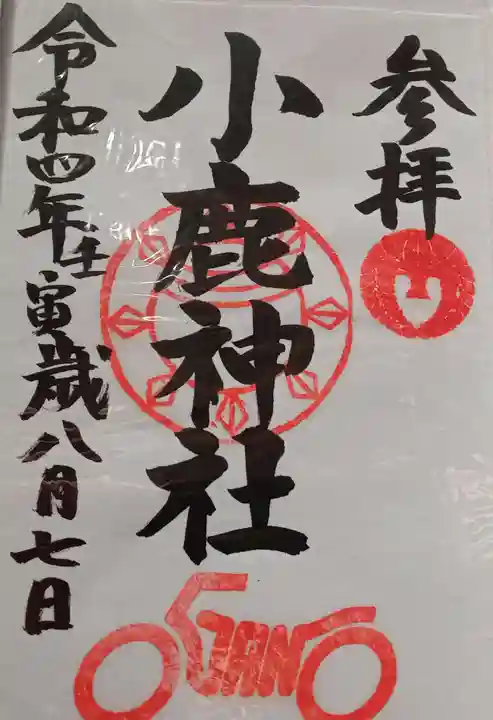 参拝
小鹿神社
令和四年壬寅歳八月七日
OGANO